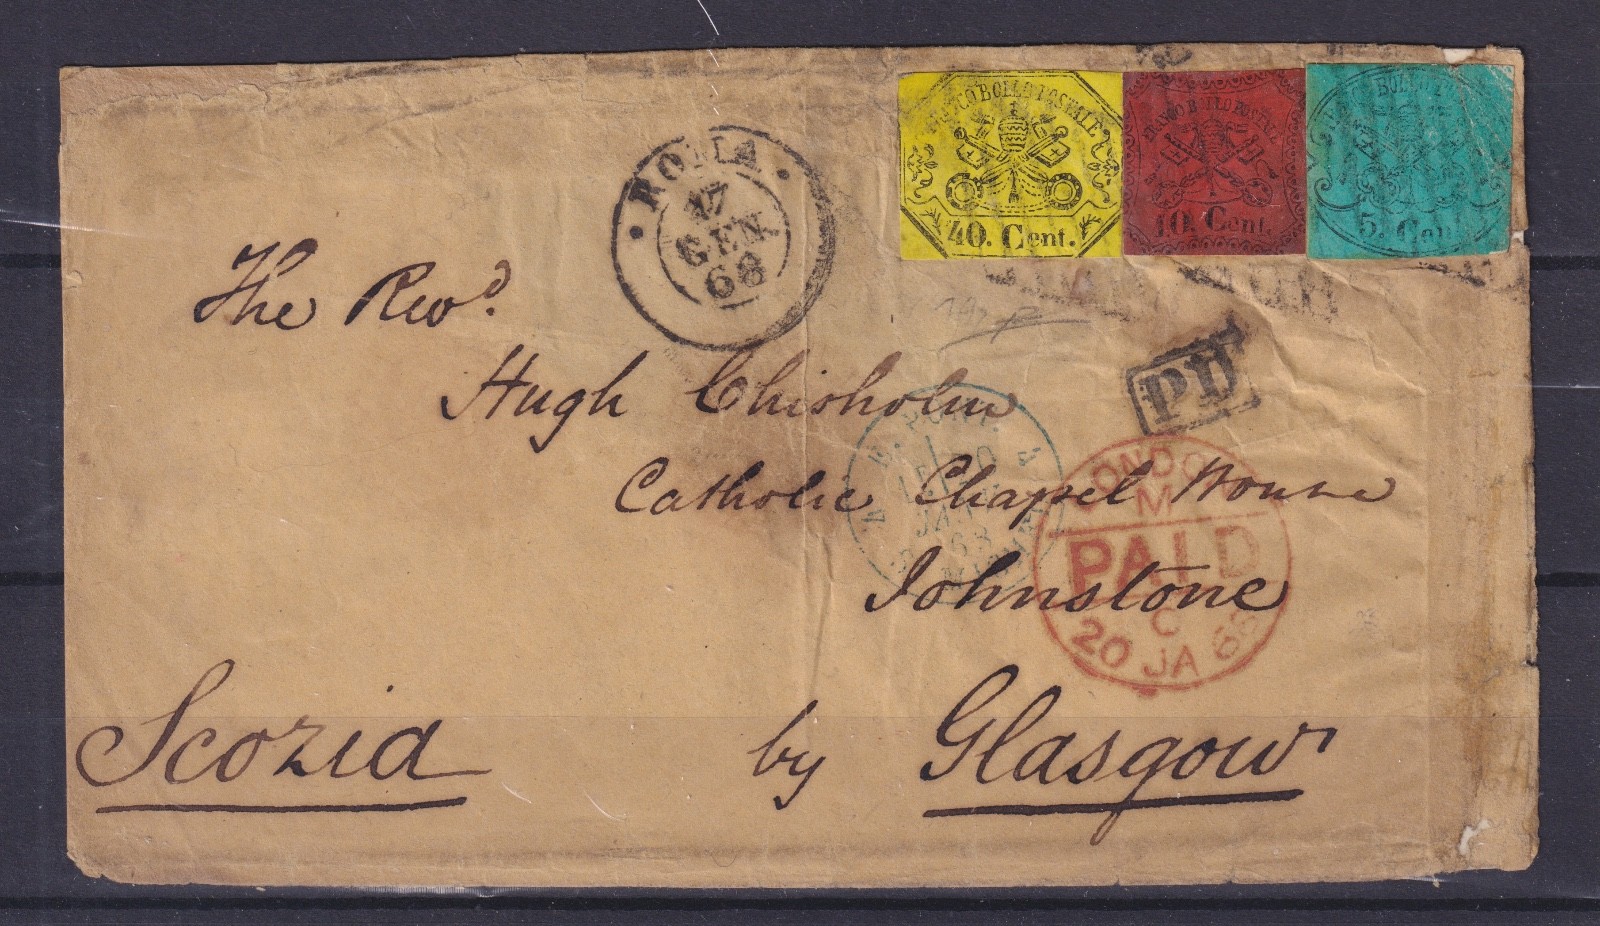 FRANCO BOLLO POSTALE
40. Cent.
FRANCO BOLLO POSTALE
10. Cent.
BOLLO
5. Cent
ROMA
17
GEN
68
PD
The Revd.
Hugh Chisholm
Catholic Chapel House
Johnstone
by Glasgow
Scozia
E. PONT.
1
68
LONDON
M
PAID
C
20 JA 68